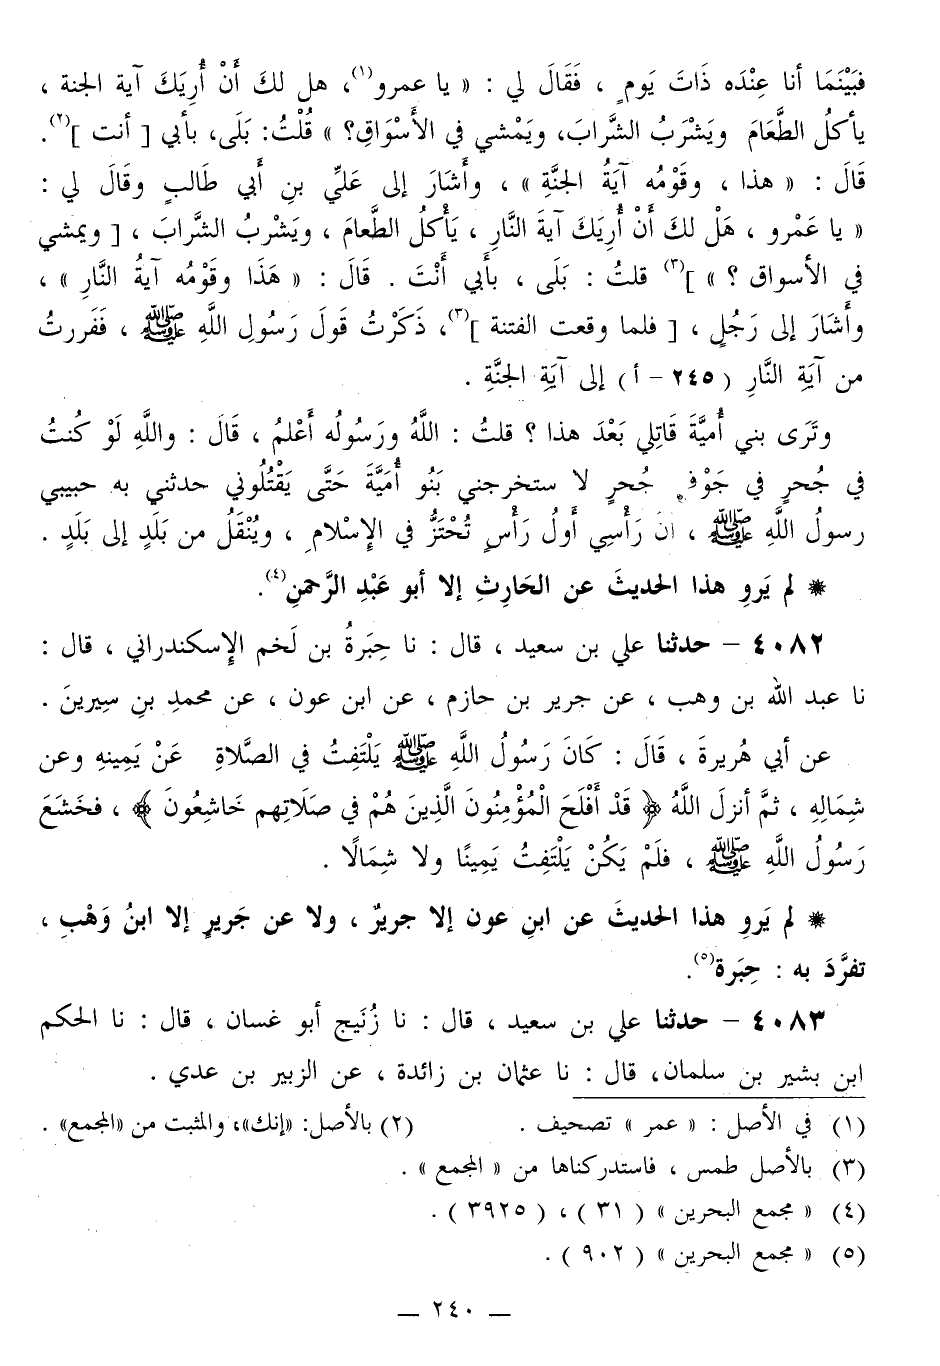 فَبَيْنَمَا أنا عِنْدَه ذَاتَ يَومٍ ، فَقَالَ لي : « يا عمرو(١)، هل لكَ أَنْ أُرِيَكَ آية الجنة ،
يأكلُ الطَّعَامَ ويَشْرَبُ الشَّرابَ، ويَمْشي في الأَسْوَاقِ؟ » قُلْتُ: بَلَى، بأبي [ أنت ](٢).
قَالَ : « هذا ، وقَوْمُه آيَةُ الجنَّةِ » ، وأَشَارَ إلى عَليِّ بنِ أَبي طَالبٍ وقَالَ لي :
« يا عَمْرو ، هَلْ لكَ أَنْ أُرِيَكَ آيةَ النَّارِ ، يَأْكلُ الطَّعامَ ، ويَشْربُ الشَّرابَ ، [ ويمشي
في الأسواق ؟ » ](٣) قلتُ : بَلَى ، بأَبي أَنْتَ . قَالَ : « هَذَا وقَوْمُه آيةُ النَّارِ » ،
وأَشَارَ إلى رَجُلٍ ، [ فلما وقعت الفتنة ](٣)، ذَكَرْتُ قَولَ رَسُولِ اللَّهِ ﷺ ، فَفَررتُ
من آيَةِ النَّارِ ( ٢٤٥ - أ ) إلى آيَةِ الجنَّةِ .
وتَرَى بني أُميَّةَ قَاتِلي بَعْدَ هذا ؟ قلتُ : اللَّهُ ورَسُولُه أَعْلمُ ، قَالَ : واللَّهِ لَوْ كُنتُ
في جُحرٍ في جَوْفِ جُحرٍ لا ستخرجني بَنُو أُمَيَّةَ حَتَّى يَقْتُلُوني حدثني به حبيبي
رسولُ اللَّهِ ﷺ ، انَ رَأْسِي أَولُ رَأْسٍ تُحْتَزُّ في الإِسْلامِ ، ويُنْقَلُ من بَلَدٍ إلى بَلَدٍ .
* لم يَروِ هذا الحديثَ عن الحَارِثِ إلا أبو عَبْدِ الرَّحمنِ(٤).
٤٠٨٢ - حدثنا علي بن سعيد ، قال : نا حِبَرةُ بن لَخم الإِسكندراني ، قال :
نا عبد الله بن وهب ، عن جرير بن حازم ، عن ابن عون ، عن محمدِ بنِ سِيرينَ .
عن أبي هُريرةَ ، قَالَ : كَانَ رَسُولُ اللَّهِ ﷺ يَلْتَفِتُ في الصَّلاةِ عَنْ يَمِينهِ وعن
شِمَالِهِ ، ثمَّ أنزلَ اللَّهُ ﴿ قَدْ أَفْلَحَ الْمُؤْمِنُونَ الَّذِينَ هُمْ فِي صَلَاتِهم خَاشِعُونَ ﴾ ، فخَشَعَ
رَسُولُ اللَّهِ ﷺ ، فلَمْ يَكُنْ يَلْتَفِتُ يَمِينًا ولا شِمَالًا .
* لم يَروِ هذا الحديثَ عن ابنِ عون إلا جريرٌ ، ولا عن جَريرٍ إلا ابنُ وَهْبِ ،
تفرَّدَ به : حِبَرة(٥).
٤٠٨٣ - حدثنا علي بن سعيد ، قال : نا زُنَيج أبو غسان ، قال : نا الحكم
ابن بشير بن سلمان، قال : نا عثمان بن زائدة ، عن الزبير بن عدي .
(١) في الأصل : « عمر » تصحيف . (٢) بالأصل: «إنك»، والمثبت من «المجمع» .
(٣) بالأصل طمس ، فاستدركناها من « المجمع » .
(٤) « مجمع البحرين » ( ٣١ ) ، ( ٣٩٢٥ ) .
(٥) « مجمع البحرين » ( ٩٠٢ ) .
— ٢٤٠ —